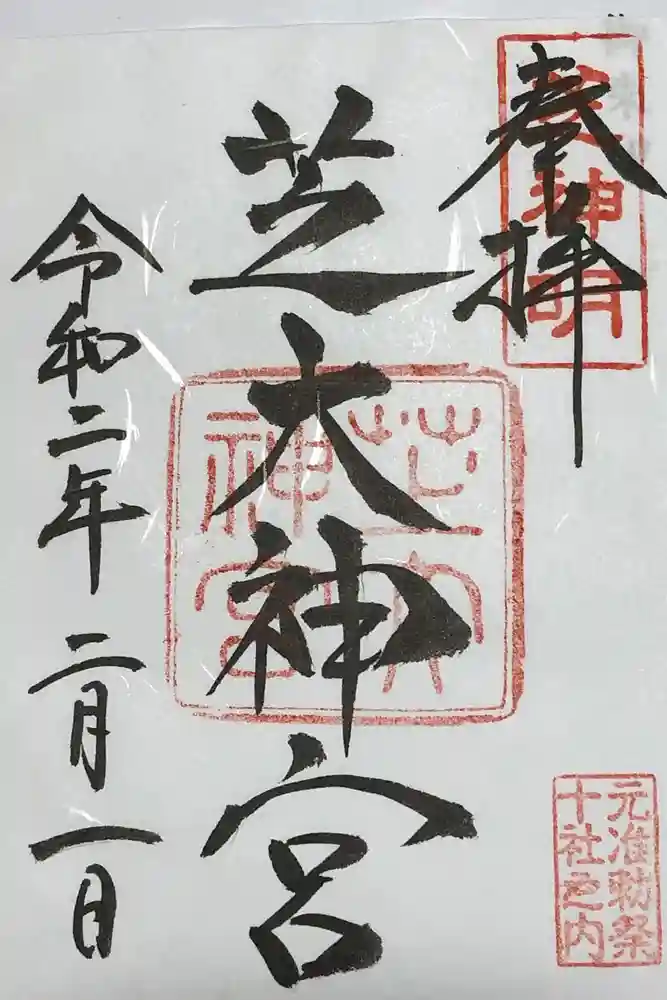 奉拝
芝神明
芝大神宮
芝大
神宮
令和二年 二月一日
元准勅祭
十社之内